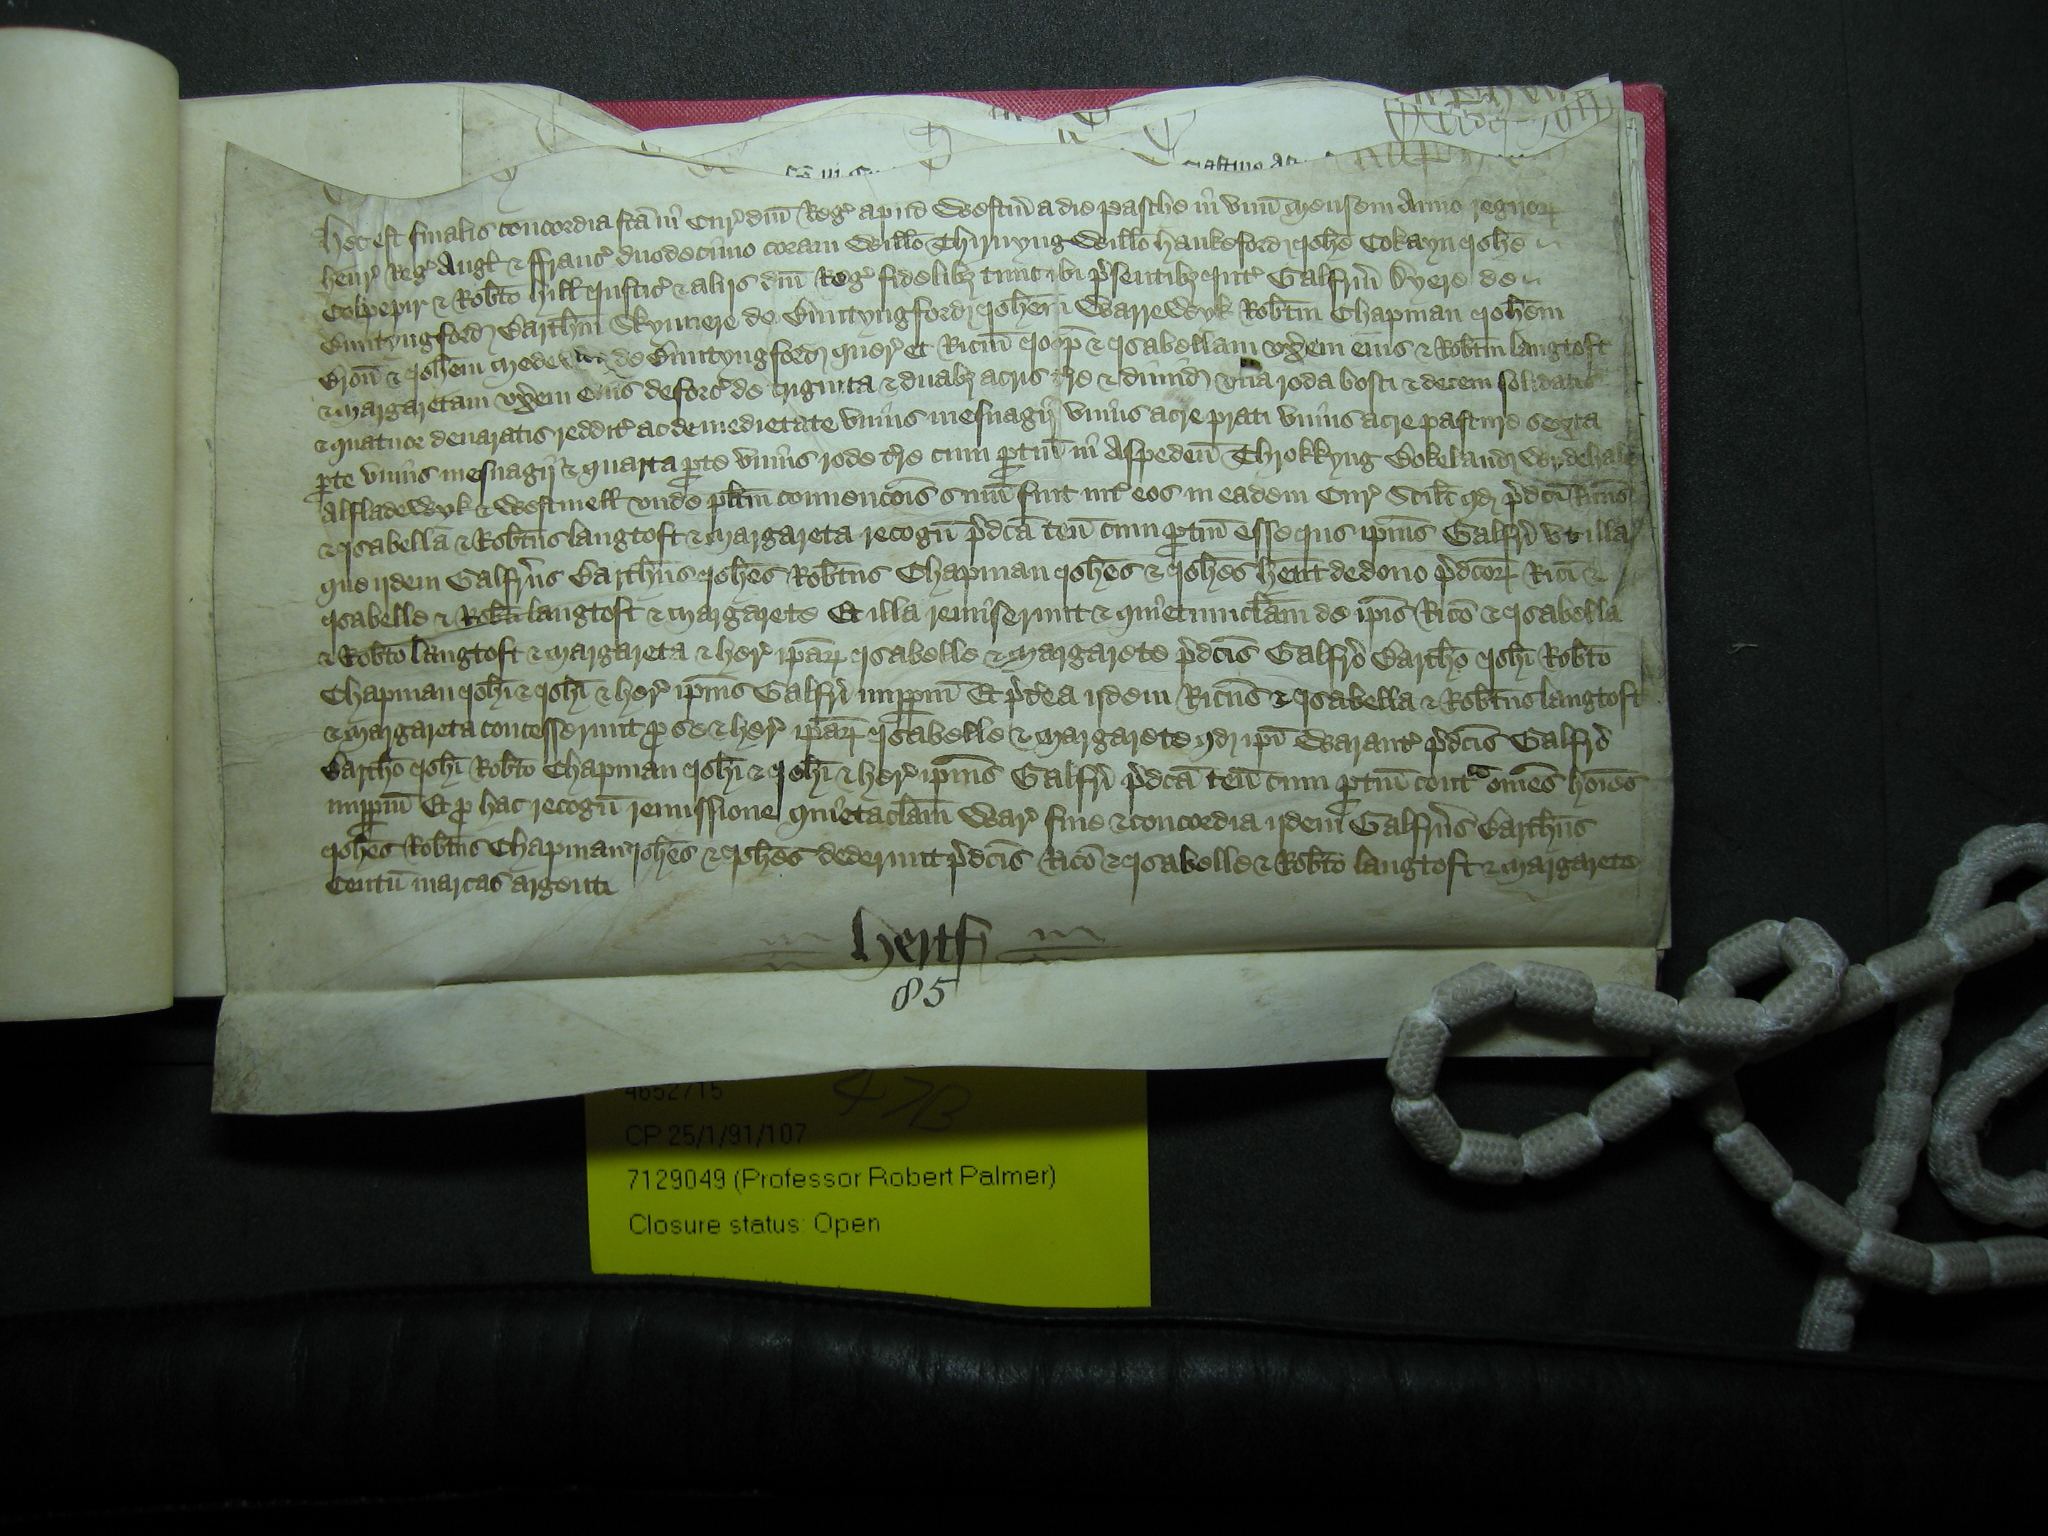 Hec est finalis concordia fc̃a in Cur̉ dñi Reg̉ apud Westm̃ a die Pasche in unũ mensem Anno regnoꝝ
Henr̉ Reg̉ Angl̉ & Franc̉ duodecimo coram Willo Thirnyng Willo Hankeford Johe Cokayn Johe
Colpepir & Robto Hill Justic̉ & alijs dñi Reg̉ fidelibȝ tunc ibi p̉sentibȝ Int̉ Galfrm̃ Dyere de
Buntyngford Barthm̃ Skynnere de Buntyngford Johem̃ Warrewyk Robtm̃ Chapman Johem̃
& Johem̃ de Buntyngford quer̉ et Ricm̃ Joop̃ & Isabellam uxem̃ eius & Robtm̃ Langtoft
& Margaretam uxem̃ eius deforc̉ de triginta & duabȝ acris tr̉e & dimid una roda bosci & decem solidatis
& quatuor denaratis reddit̉ ac de medietate unius mesuagij unius acre prati unius acre pasture sexta
ꝑte unius mesuagij & quarta ꝑte unius rode tr̉e cum ꝑtiñ in Aspeden̉ Throkkyng Bokeland Wydehale
Alfladewyk & Westmell unde plitm̃ convencõis sum̃ fuit int̉ eos in eadem Cur̉ Scilt̉ qd p̉dc̃i Ricus̃
& Isabella & Robtus̃ Langtoft & Margareta recogñ p̉dc̃a teñ cum ꝑtiñ esse Jus ip̃ius Galfrĩ ut illa
que ijdem Galfrus̃ Barthus̃ Johes̃ Robtus̃ Chapman Johes̃ & Johes̃ hent̃ de dono p̉dc̃oꝝ Ricỉ &
Isabelle & Robtỉ Langtoft & Margarete Et illa remiserunt & quietumclam̃ de ip̃is Ricỏ & Isabella
& Robtỏ Langtoft & Margareta & her̉ ip̃aꝝ Isabelle & Margarete p̉dc̃is Galfrỏ Barthỏ Johỉ Robtỏ
Chapman Johỉ & Johỉ & her̉ ip̃ius Galfrỉ imꝑpm̃ Et p̉t̉ea ijdem Ricus̃ & Isabella & Robtus̃ Langtoft
& Margareta concesserunt ꝓ se & her̉ ip̃aꝝ Isabelle & Margarete qd ip̃i Warant̉ p̉dc̃is Galfrỏ
Barthỏ Johỉ Robtỏ Chapman Johỉ & Johỉ & her̉ ip̃ius Galfrỉ p̉dc̃a teñ cum ꝑtiñ contᵃ om̃es hõies
imꝑpm̃ Et ꝓ hac recogñ remissione quietaclam̃ War̉ fine & concordia ijdem Galfrus̃ Barthus̃
Johes̃ Robtus̃ Chapman Johes̃ & Johes̃ dederunt p̉dc̃is Ricỏ & Isabelle & Robtỏ Langtoft & Margarete
Centũ marcas argenti
Hertf
85
4652715
47B
CP 25/1/91/107
7129049 (Professor Robert Palmer)
Closure status: Open